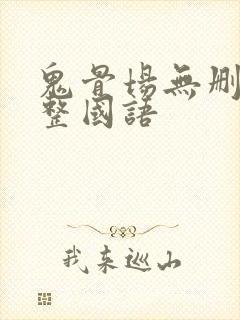 鬼骨场無删
整國語
我来巡山